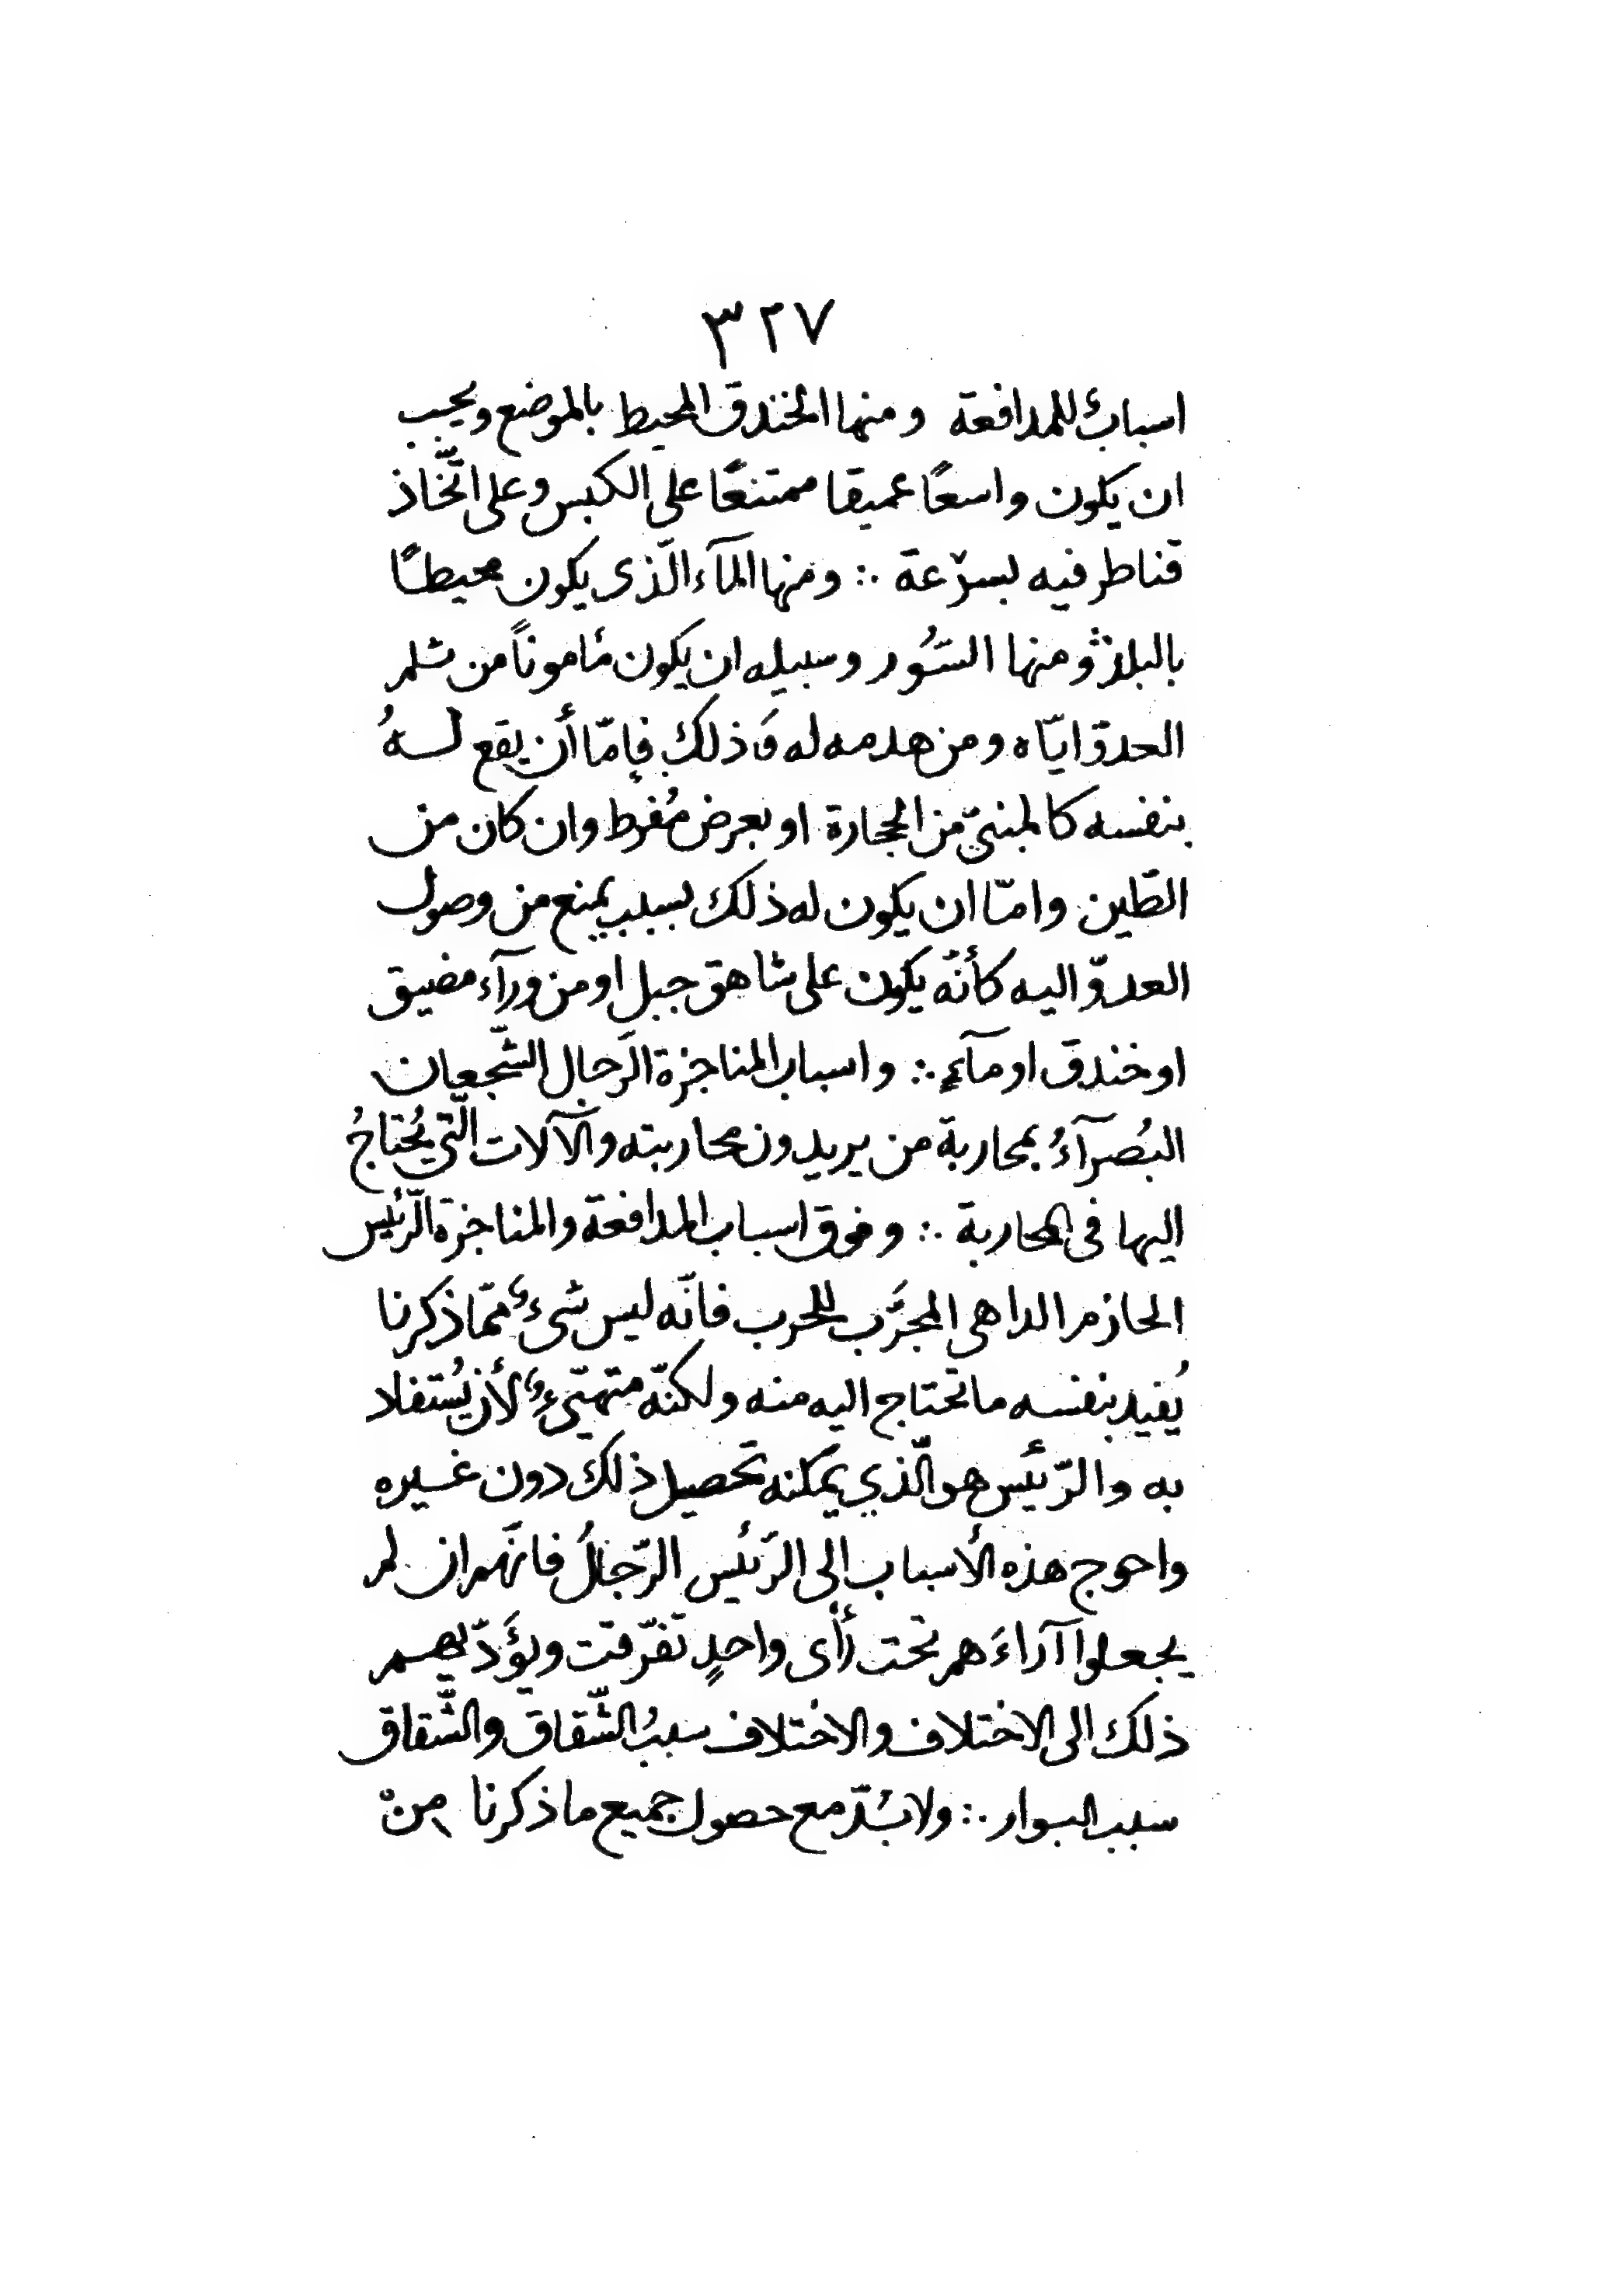 ٣٢٧
اسبابٌ للمدافعة ومنها الخندق المحيط بالموضع ويجب
ان يكون واسعًا عميقا ممتنعًا على الكبس وعلى اتّخاذ
قناطر فيه بسرْعة ∴ ومنها المآء الّذى يكون محيطًا
بالبلد ∴ ومنها السُّور وسبيله ان يكون مأموناً من ثلم
العدوّ ايّاه ومن هدمه له وَذلك فإمّا أن يقع لهُ
بنفسه كالمبنىّ من الحجارة او بعرض مُفرط وان كان من
الطّين وامّا ان يكون له ذلك بسبب يمنع من وصول
العدوّ اليه كأنّه يكون على شاهق جبل او من ورآء مضيق
او خندق او مآءٍ ∴ واسباب المناجزة الرّجال الشّجعان
البُصرآءُ بمحاربة من يريدون محاربته والآلات الّتى يُحتاجُ
اليها فى المحاربة ∴ وفوق اسباب المدافعة والمناجزة الرّئيس
الحازم الداهى المجرَّب للحرب فانّه ليس شىءٌ ممّا ذكرنا
يُفيد بنفسه ما تحتاج اليه منه ولكنّه متهيّىءٌ لأن يُستفاد
به والرّئيس هو الّذي يمكنه تحصيل ذلك دون غيره
واحوج هذه الأسباب الى الرّئيس الرّجالُ فانّهم ان لم
يجعلوا آراءَهم تحت رأى واحدٍ تفرّقت ويؤدّيهم
ذلك الى الاختلاف والاختلاف سببُ الشّقاق والشّقاق
سبب البوار ∴ ولا بُدّ مع حصول جميع ما ذكرنا مِنْ